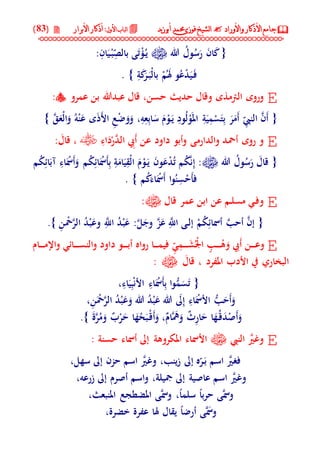 جامع الأذكار والأوراد الشيخ فوزي محمد أبوزيد الباب الأول: أذكار الأبرار (83)
{ كَانَ رَسُولُ اللهِ يُؤْتَى بِالصِّبْيَانِ:
فَيَدْعُو لَهُمْ بِالْبَرَكَةِ } .
وروى الترمذى وقال حديث حسن، قال عبدالله بن عمرو :
{ أَنَّ النبيَّ أَمَرَ بِتَسْمِيَةِ الْمَوْلُودِ يَوْمَ سَابِعِهِ، وَوَضْعِ الأَذَى عَنْهُ وَالْعَقِّ }
و روى أحمد والدارمى وأبو داود عن أَبِي الدَّرْدَاءِ ، قال:
{ قَالَ رَسُولُ اللهِ : إِنَّكُم تُدْعَوْنَ يَوْمَ الْقِيَامَةِ بِأَسْمَائِكُم وَأَسْمَاءِ آبَائِكُم
فَأَحْسِنُوا أَسْمَاءَكُم } .
وفي مسلم عن ابن عمر قال :
{ إنَّ أحبَّ أسمائِكُمْ إلى اللَّهِ عَزَّ وَجلَّ: عَبْدُ اللَّهِ وَعَبْدُ الرَّحْمنِ }.
وعن أَبي وَهْبٍ الْجُشَمِيِّ فيما رواه أبو داود والنسائي والإمام
البخاري في الأدب المفرد ، قال :
{ تَسَمَّوا بِأَسْمَاءِ الأَنْبِيَاءِ،
وَأَحَبُّ الأسْمَاءِ إِلَى اللهِ عَبْدُ اللهِ وَعَبْدُ الرَّحْمنِ،
وَأَصْدَقُهَا حَارِثٌ وَهَمَّامٌ، وَأَقْبَحُهَا حَرْبٌ وَمُرَّةُ }.
وغيَّر النبي الأسماء المكروهة إلى أسماء حسنة :
فغيَّر اسم بَرّة إلى زينب، وغيَّر اسم حزن إلى سهل،
وغيَّر اسم عاصية إلى جميلة، واسم أصرم إلى زرعه،
وسمَّى حرباً سلماً، وسمَّى المضطجع المنبعث،
وسمَّى أرضاً يقال لها عفرة خضرة،